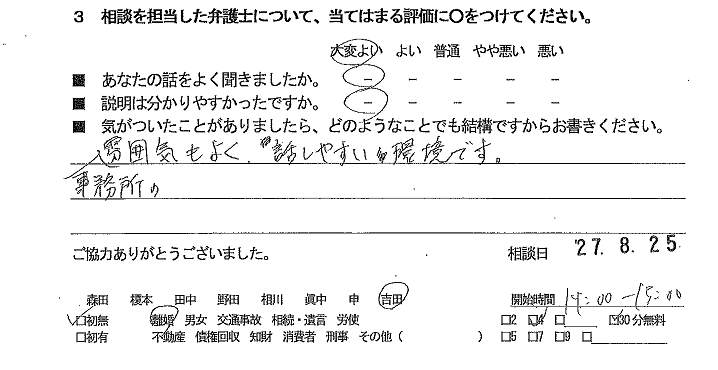 3 相談を担当した弁護士について、当てはまる評価に〇をつけてください。
大変よい よい 普通 やや悪い 悪い
■ あなたの話をよく聞きましたか。 － － － － －
■ 説明は分かりやすかったですか。 － － － － －
■ 気がついたことがありましたら、どのようなことでも結構ですからお書きください。
雰囲気もよく、話しやすい環境です。
事務所の
ご協力ありがとうございました。 相談日 '27. 8. 25
森田 榎本 田中 野田 相川 眞中 申 吉田 開始時間 14:00 －15:00
□初無 離婚 男女 交通事故 相続・遺言 労使 □2 ☑4 □ ☑30分無料
□初有 不動産 債権回収 知財 消費者 刑事 その他（ ） □5 □7 □9 □